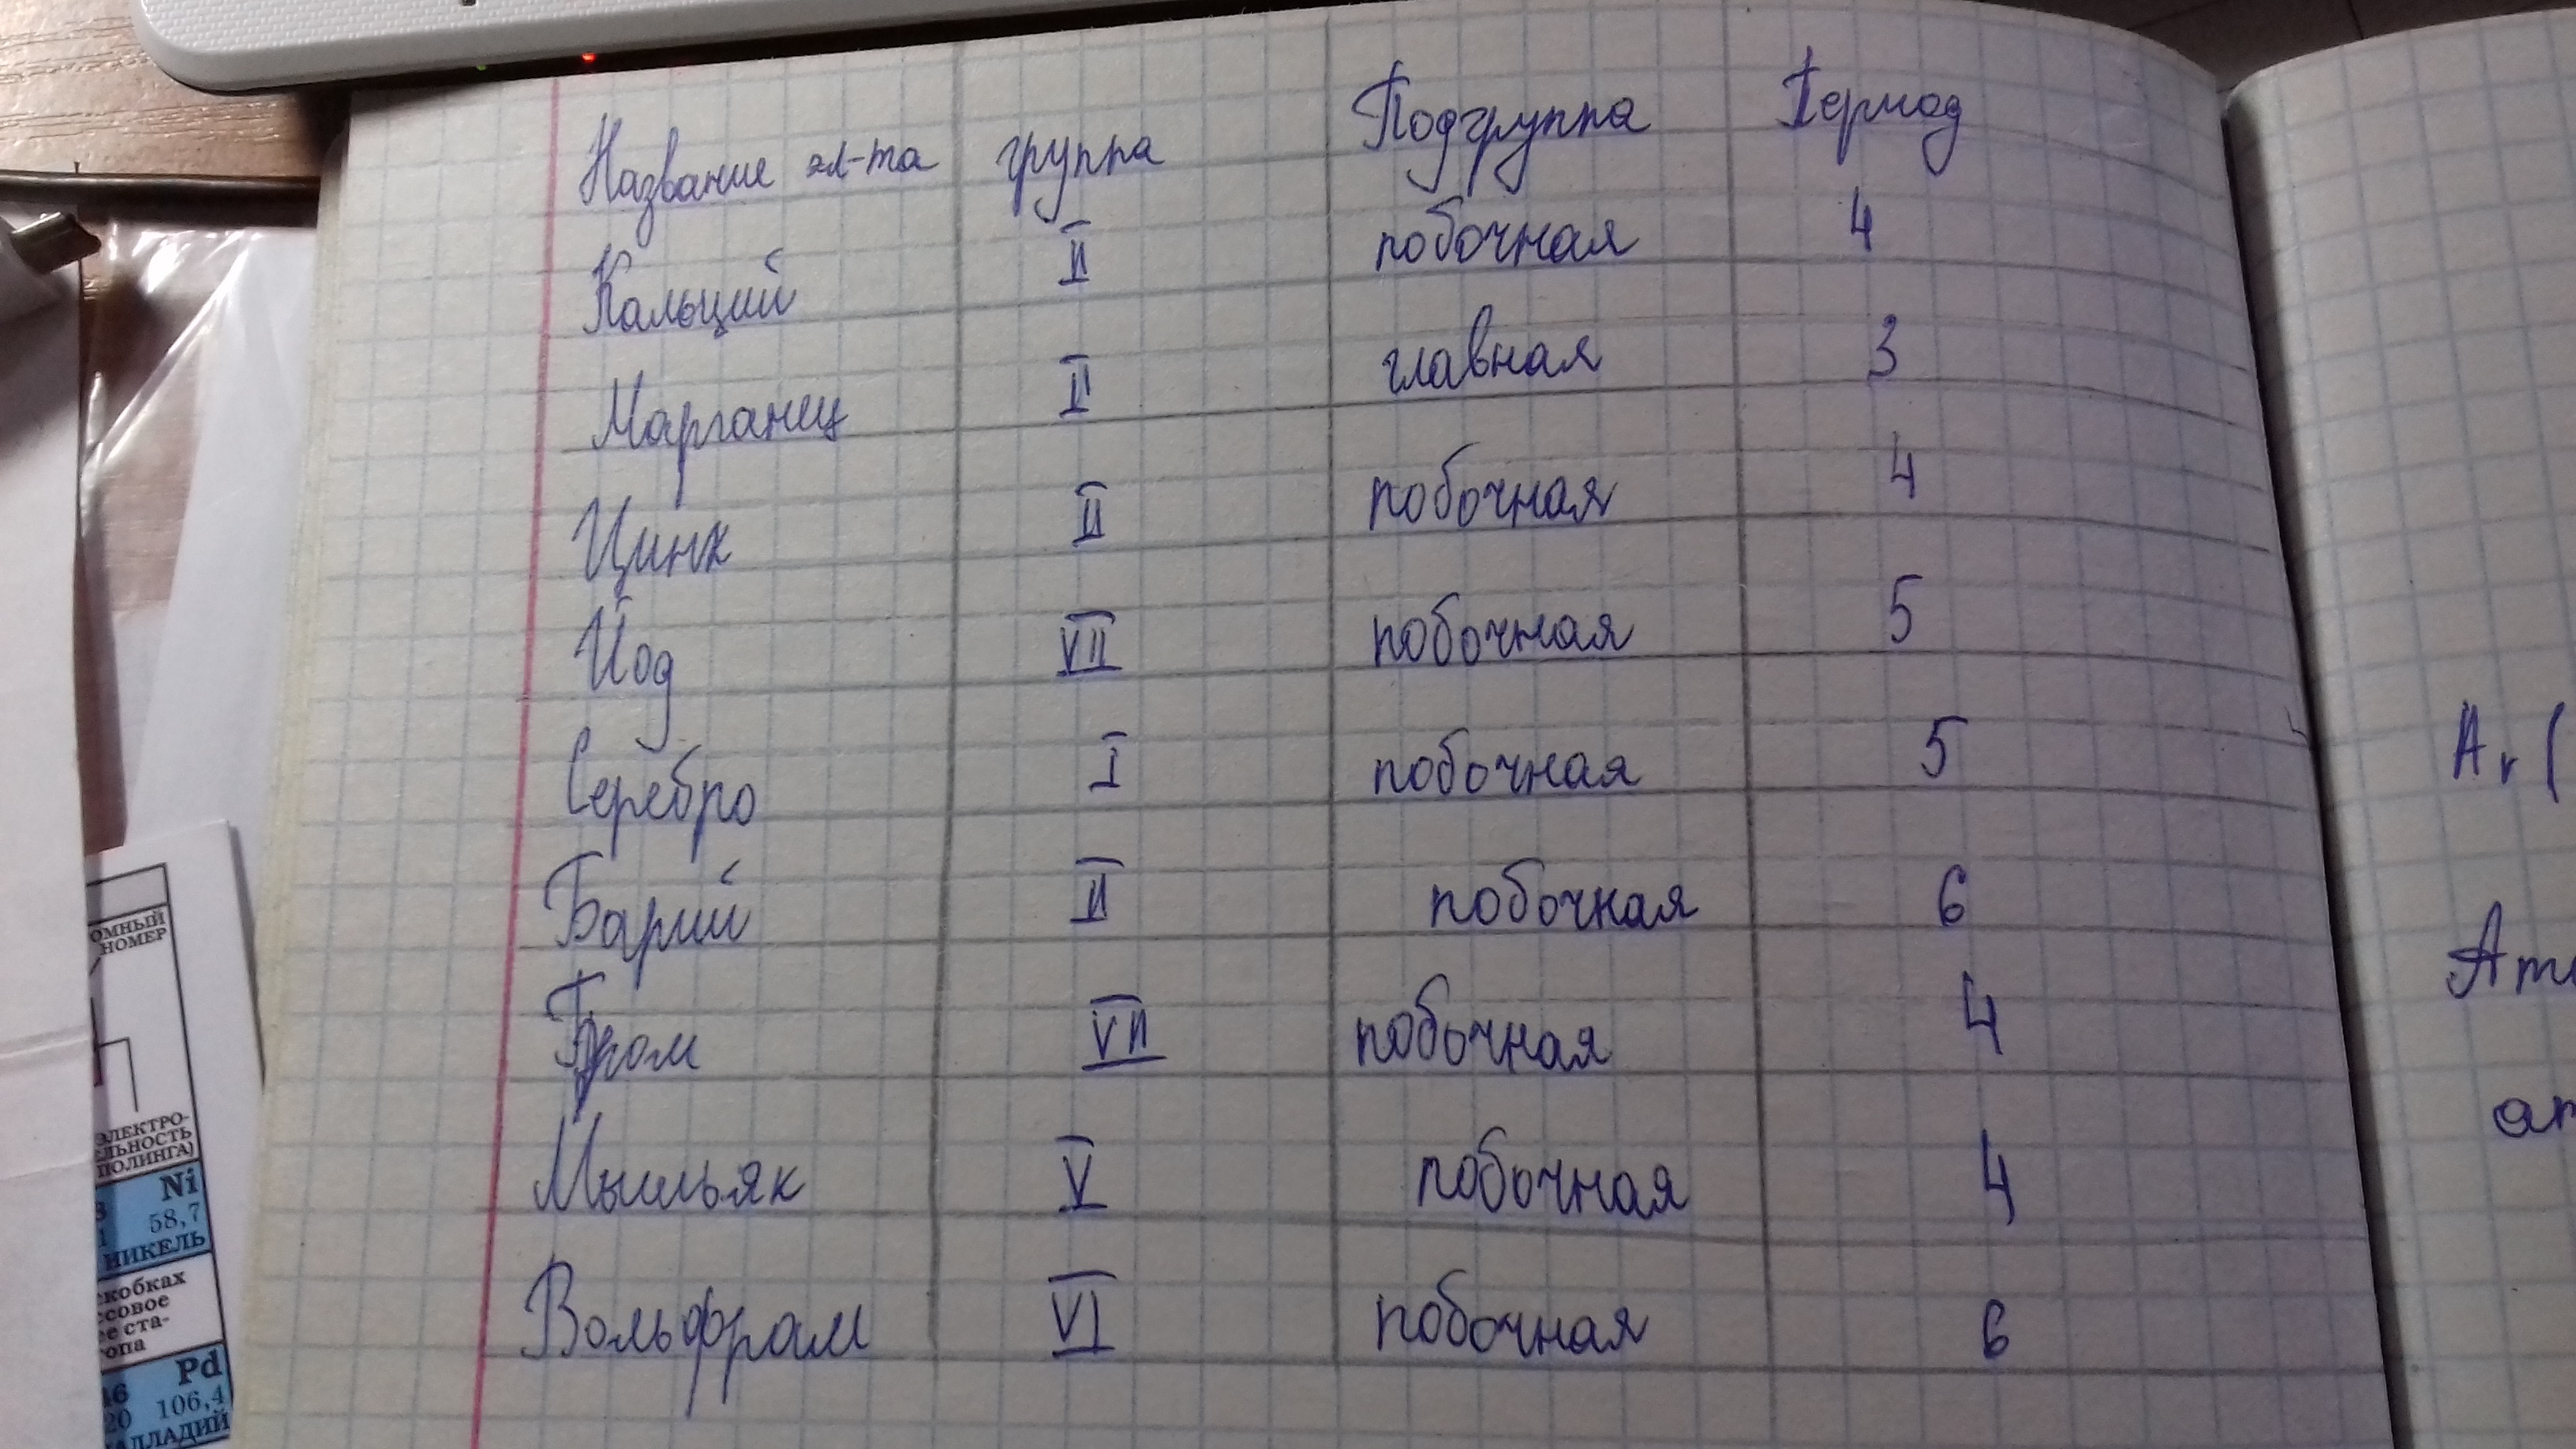 Название эл-та группа Подгруппа Период
Кальций II побочная 4
Марганец II главная 3
Цинк II побочная 4
Йод VII побочная 5
Серебро I побочная 5
Барий II побочная 6
Бром VII побочная 4
Мышьяк V побочная 4
Вольфрам VI побочная 6
Ar (
Ат
ат
ОМНЫЙ
НОМЕР
ЭЛЕКТРО-
ЕЛЬНОСТЬ
ПОЛИНГА)
Ni
58,7
НИКЕЛЬ
скобках
ссовое
ее ста-
опа
Pd
46
20 106,4
АЛЛАДИЙ